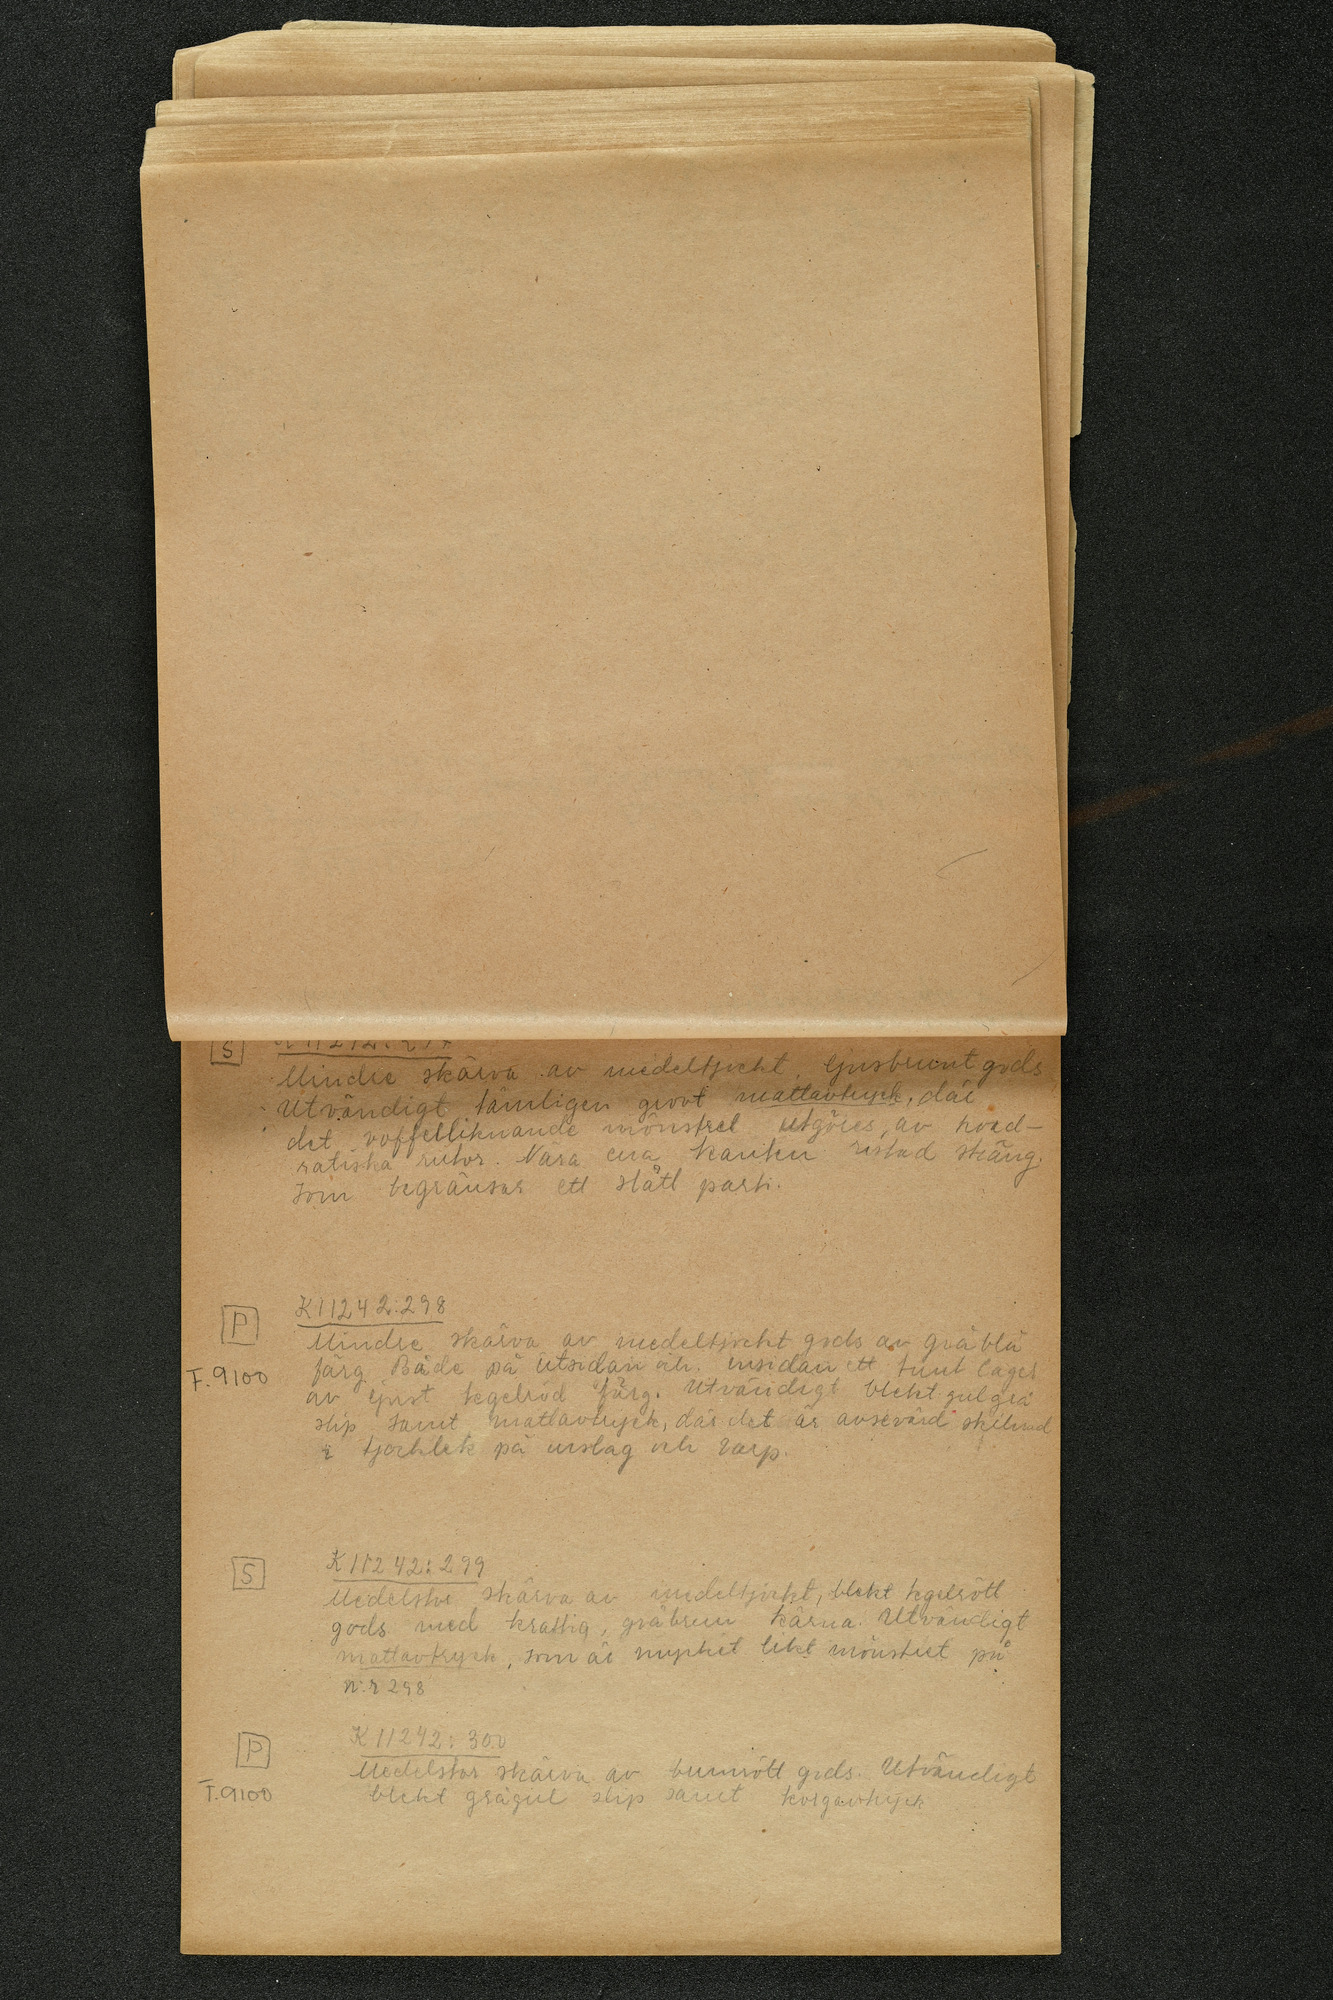 S K 11242:297
Mindre skärva av medeltjockt, ljusbrunt gods
Utvändigt tämligen grovt mattavtryck, där
det voffelliknande mönstret utgöres av kvad-
ratiska rutor. Nära ena kanten ristad sträng.
som begränsar ett slätt parti.
P K11242:298
Mindre skärva av medeltjockt gods av gråblå
F.9100 färg. Både på utsidan och insidan ett tunt lager
av ljust tegelröd färg. Utvändigt blekt gulgrå
slip samt mattavtryck, där det är avsevärd skillnad
i tjocklek på inslag och varp.
S K 11242:299
Medelstor skärva av medeltjockt, blekt tegelrött
gods med kraftig, gråbrun kärna. Utvändigt
mattavtryck, som är mycket likt mönstret på
n:r 298
P K 11242:300
Medelstor skärva av brunrött gods. Utvändigt
F.9100 blekt grågul slip samt korgavtryck